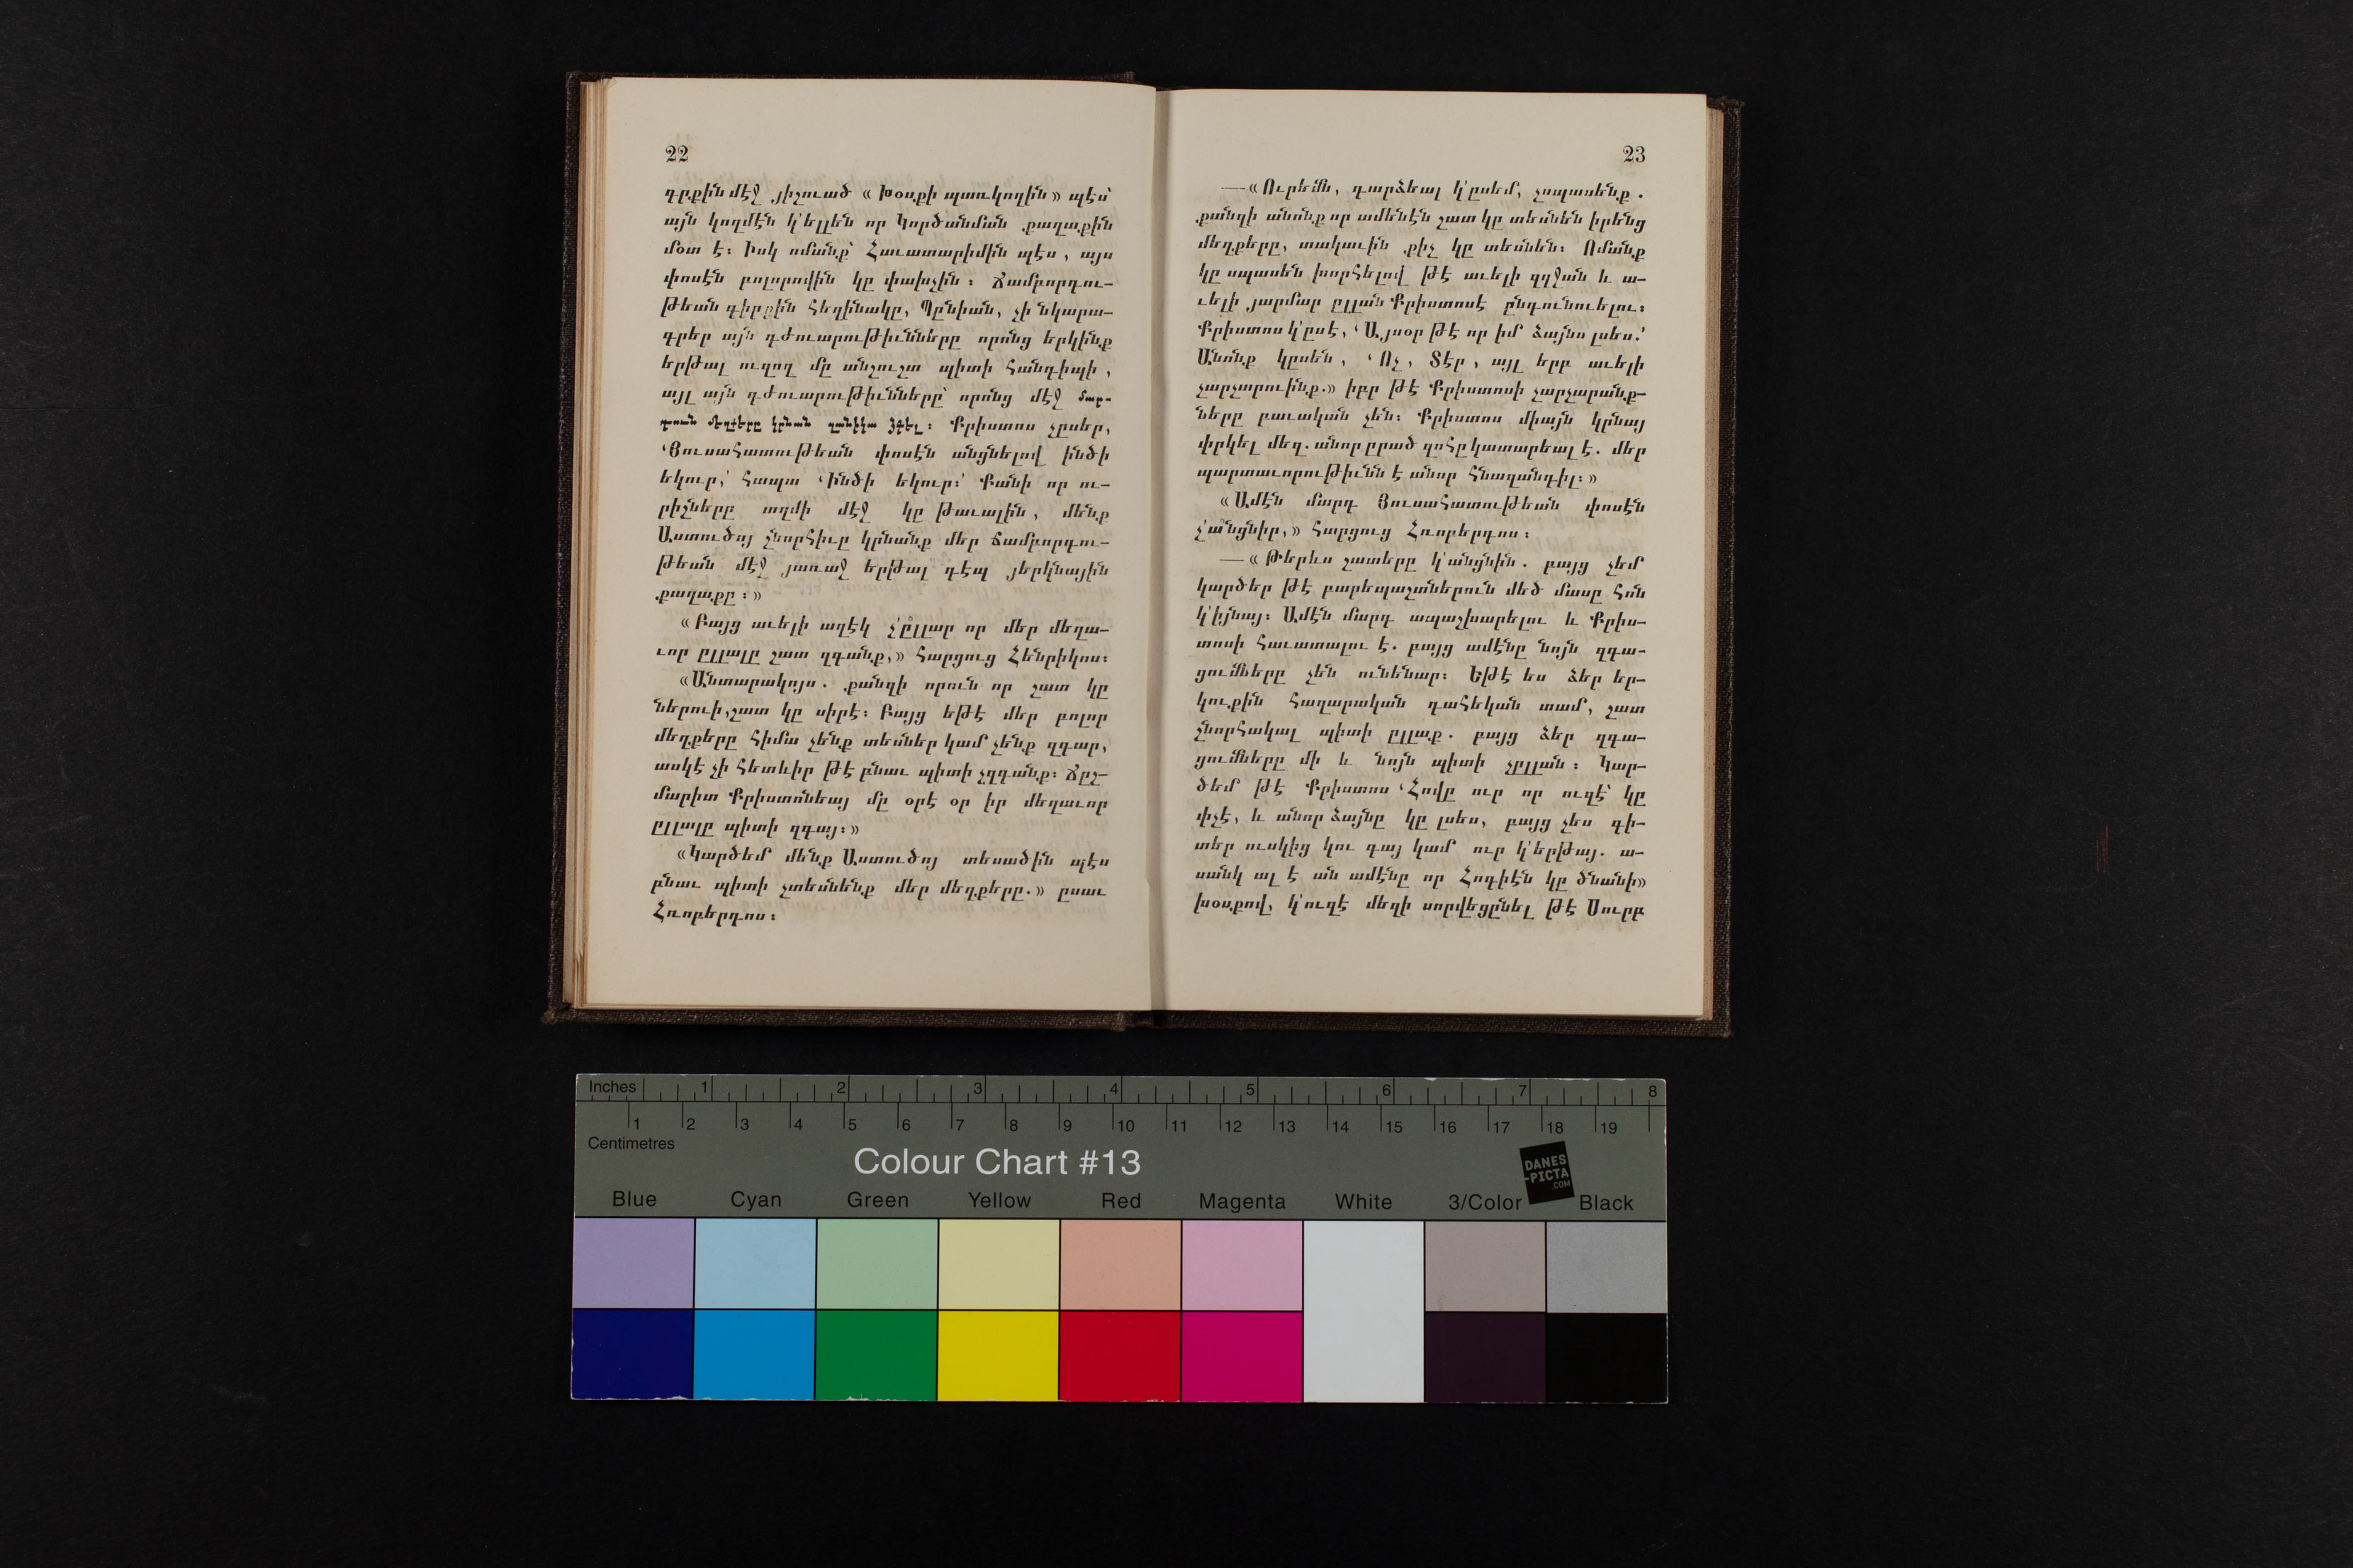 22
գրքին մէջ յիշուած «Խօսքի պտուկողին» պէս՝
այն կողմէն կ՚ելլեն որ Կործանման քաղաքին
մօտ է։ Իսկ ոմանք՝ Հաւատարիմին պէս, այս
փոսէն բոլորովին կը փախչին։ Ճամբորդու-
թեան գիրքին հեղինակը, Պընիան, չի նկարա-
գրեր այն դժուարութիւնները որոնց երկինք
երթալ ուզող մը անշուշտ պիտի հանդիպի,
այլ այն դժուարութիւնները՝ որոնց մէջ մար-
դուն մեղքերը կրնան զանիկա ձգել։ Քրիստոս չըսեր,
‘Յուսահատութեան փոսէն անցնելով ինծի
եկուր,’ հապա ‘Ինծի եկուր։’ Քանի որ ու-
րիշները տղմի մէջ կը թաւալին, մենք
Աստուծոյ շնորհիւը կրնանք մեր ճամբորդու-
թեան մէջ յառաջ երթալ դէպ յերկնային
քաղաքը։»
«Բայց աւելի աղէկ չ՚ը՞լլար որ մեր մեղա-
ւոր ըլլալը շատ զգանք,» հարցուց Հենրիկոս։
«Անտարակոյս. քանզի որուն որ շատ կը
ներուի, շատ կը սիրէ։ Բայց եթէ մեր բոլոր
մեղքերը հիմա չենք տեսներ կամ չենք զգար,
ասկէ չի հետևիր թէ բնաւ պիտի չզգանք։ Ճըշ-
մարիտ Քրիստոնեայ մը օրէ օր իր մեղաւոր
ըլլալը պիտի զգայ։»
«Կարծեմ մենք Աստուծոյ տեսածին պէս
բնաւ պիտի չտեսնենք մեր մեղքերը.» ըսաւ
Հռոբերդոս։
23
—«Ուրեմն, դարձեալ կ՚ըսեմ, չսպասենք.
քանզի անոնք որ ամենէն շատ կը տեսնեն իրենց
մեղքերը, տակաւին քիչ կը տեսնեն։ Ոմանք
կը սպասեն խորհելով թէ աւելի զղջան և ա-
ւելի յարմար ըլլան Քրիստոսէ ընդունուելու։
Քրիստոս կ՚ըսէ, ‘Այսօր թէ որ իմ ձայնս լսես.’
Անոնք կըսեն, ‘Ոչ, Տէր, այլ երբ աւելի
չարչարուինք.» իբր թէ Քրիստոսի չարչարանք-
ները բաւական չեն։ Քրիստոս միայն կրնայ
փրկել մեզ. անոր ըրած զոհը կատարեալ է. մեր
պարտաւորութիւնն է անոր հնազանդիլ։»
«Ամէն մարդ Յուսահատութեան փոսէն
չ՚ա՞նցնիր,» հարցուց Հռոբերդոս։
—«Թերևս շատերը կ՚անցնին. բայց չեմ
կարծեր թէ բարեպաշտներուն մեծ մասը հոն
կ՚իյնայ։ Ամէն մարդ ապաշխարելու և Քրիս-
տոսի հաւատալու է. բայց ամէնը նոյն զգա-
ցումները չեն ունենար։ Եթէ ես ձեր եր-
կուքին հազարական դահեկան տամ, շատ
շնորհակալ պիտի ըլլաք. բայց ձեր զգա-
ցումները մի և նոյն պիտի չըլլան։ Կար-
ծեմ թէ Քրիստոս ‘Հովը ուր որ ուզէ՝ կը
փչէ, և անոր ձայնը կը լսես, բայց չես գի-
տեր ուսկից կու գայ կամ ուր կ՚երթայ. ա-
սանկ ալ է ան ամէնը որ Հոգիէն կը ծնանի»
խօսքով, կ՚ուզէ մեզի սորվեցընել թէ Սուրբ
Inches 1 2 3 4 5 6 7 8
1 2 3 4 5 6 7 8 9 10 11 12 13 14 15 16 17 18 19
Centimetres
Colour Chart #13
DANES
-PICTA
.COM
Blue Cyan Green Yellow Red Magenta White 3/Color Black